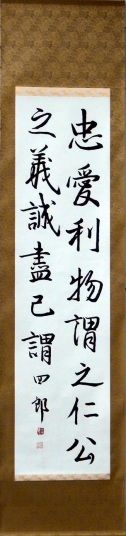 忠愛利物謂之仁公
之義誠盡己謂四郎